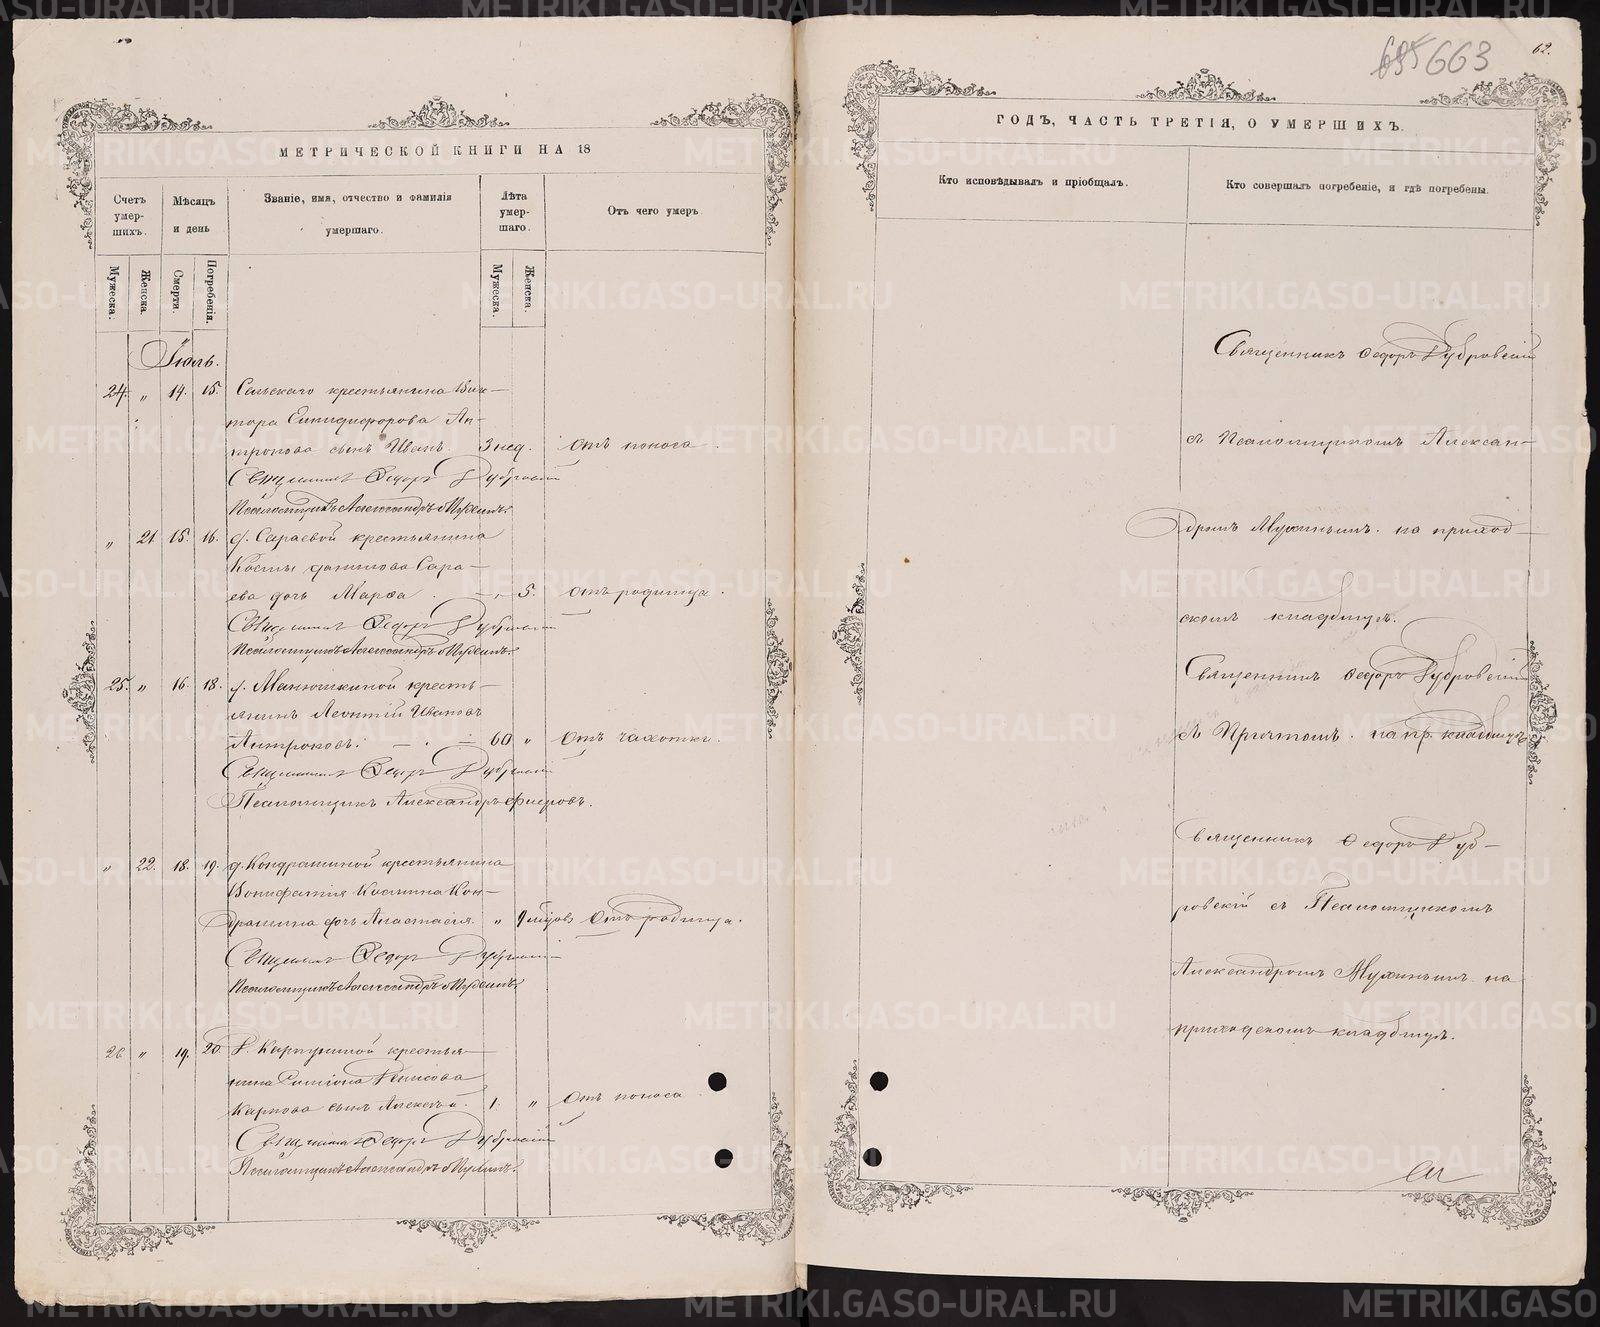 МЕТРИЧЕСКОЙ КНИГИ НА 18
Счетъ умер-шихъ.
Мѣсяцъ и день
Званіе, имя, отчество и фамилія умершаго.
Лѣта умер-шаго.
Отъ чего умеръ
Мужеска. Женска. Смерти. Погребенія. Мужеска. Женска.
Іюль.
24. " 14. 15. Сельскаго крестьянина Вик-
тора Ан-
тропова сынъ Иванъ. 3 нед. отъ поноса.
Священникъ Ѳедоръ Дубровскій
Псаломщикъ Александръ Мухинъ.
" 21. 15. 16. д. Сараевой крестьянина
Косьмы Данилова Сара-
ева дочь Марѳа. 5. отъ родимца.
Священникъ Ѳедоръ Дубровскій
Псаломщикъ Александръ Мухинъ.
25. " 16. 18. д. Манюшкиной кресть-
янинъ Леонтій Ивановъ
Антроповъ. 60 " Отъ чахотки.
Священникъ Ѳедоръ Дубровскій
Псаломщикъ Александръ
" 22. 18. 19. д. Кондрашиной крестьянина
Вонифатія Космина Кон-
драшина дочь Анастасія. " 9 мѣсяцов Отъ родимца.
Священникъ Ѳедоръ Дубровскій
Псаломщикъ Александръ Мухинъ.
26. " 19. 20. д. Карпушиной крестья-
нина Денисова
Карпова сынъ Алексѣй. 1. " Отъ поноса
Священникъ Ѳедоръ Дубровскій
Псаломщикъ Александръ Мухинъ.
663
62.
ГОДЪ, ЧАСТЬ ТРЕТІЯ, О УМЕРШИХЪ.
Кто исповѣдывалъ и пріобщалъ.
Кто совершалъ погребеніе, и гдѣ погребены.
Священникъ Ѳедоръ Дубровскій
съ Псаломщикомъ Алексан-
дромъ Мухинымъ. на приход-
скомъ кладбищѣ.
Священникъ Ѳедоръ Дубровскій
съ Причтомъ. на пр. кладбищѣ
Священникъ Ѳедоръ Дуб-
ровскій съ Псаломщикомъ
Александромъ Мухинымъ на
приходскомъ кладбищѣ.
METRIKI.GASO-URAL.RU